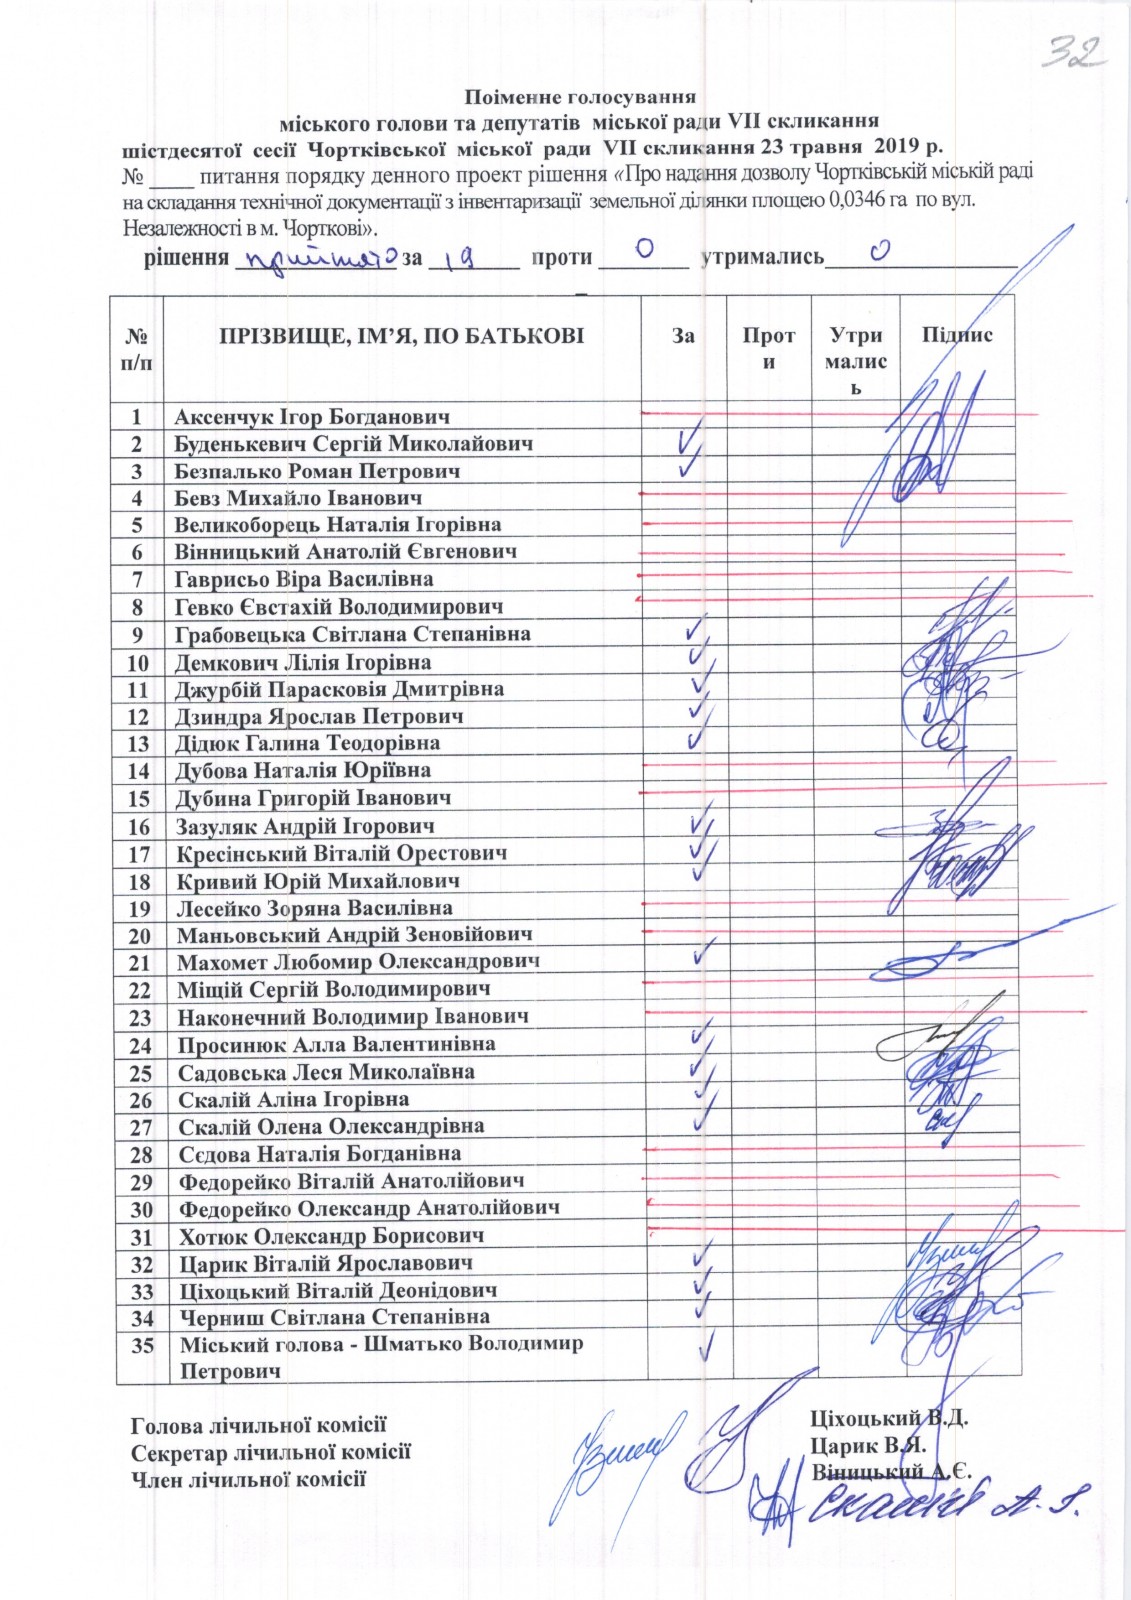 32
Поіменне голосування
міського голови та депутатів міської ради VII скликання
шістдесятої сесії Чортківської міської ради VII скликання 23 травня 2019 р.
№ ____ питання порядку денного проект рішення «Про надання дозволу Чортківській міській раді
на складання технічної документації з інвентаризації земельної ділянки площею 0,0346 га по вул.
Незалежності в м. Чорткові».
рішення прийнято за 19 проти 0 утримались 0
№ п/п ПРІЗВИЩЕ, ІМ’Я, ПО БАТЬКОВІ За Прот и Утри малис ь Підпис
1 Аксенчук Ігор Богданович
2 Буденькевич Сергій Миколайович ✓
3 Безпалько Роман Петрович ✓
4 Бевз Михайло Іванович
5 Великоборець Наталія Ігорівна
6 Вінницький Анатолій Євгенович
7 Гаврисьо Віра Василівна
8 Гевко Євстахій Володимирович
9 Грабовецька Світлана Степанівна ✓
10 Демкович Лілія Ігорівна ✓
11 Джурбій Парасковія Дмитрівна ✓
12 Дзиндра Ярослав Петрович ✓
13 Дідюк Галина Теодорівна ✓
14 Дубова Наталія Юріївна
15 Дубина Григорій Іванович
16 Зазуляк Андрій Ігорович ✓
17 Кресінський Віталій Орестович ✓
18 Кривий Юрій Михайлович ✓
19 Лесейко Зоряна Василівна
20 Маньовський Андрій Зеновійович
21 Махомет Любомир Олександрович ✓
22 Міщій Сергій Володимирович
23 Наконечний Володимир Іванович
24 Просинюк Алла Валентинівна ✓
25 Садовська Леся Миколаївна ✓
26 Скалій Аліна Ігорівна ✓
27 Скалій Олена Олександрівна ✓
28 Сєдова Наталія Богданівна
29 Федорейко Віталій Анатолійович
30 Федорейко Олександр Анатолійович
31 Хотюк Олександр Борисович
32 Царик Віталій Ярославович ✓
33 Ціхоцький Віталій Деонідович ✓
34 Черниш Світлана Степанівна ✓
35 Міський голова - Шматько Володимир ✓
Петрович
Голова лічильної комісії Ціхоцький В.Д.
Секретар лічильної комісії Царик В.Я.
Член лічильної комісії Віницький А.Є.
Скалій А. І.